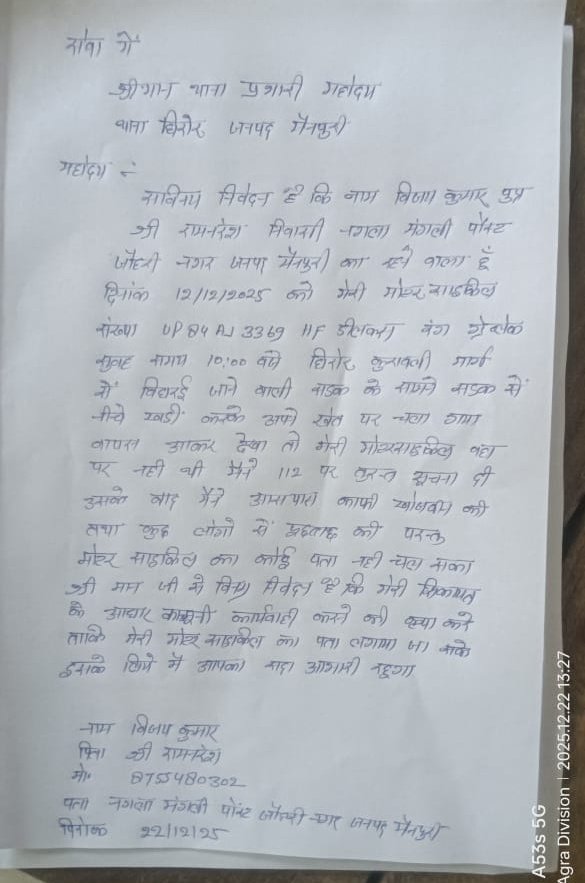 सेवा में
श्रीमान थाना प्रभारी महोदय
थाना घिरोर जनपद मैनपुरी
महोदय :-
सविनय निवेदन है कि नाम विजय कुमार पुत्र
श्री रामनरेश निवासी नगला मंगली पोस्ट
नगर जनपद मैनपुरी का रहने वाला हूँ
दिनांक 12/12/2025 को मेरी मोटर साइकिल
संख्या UP 84 AJ 3369 HF डीलक्स रंग ग्रे ब्लेक
सुबह समय 10:00 बजे घिरोर कुरावली मार्ग
से जाने वाली सडक के सामने सडक से
नीचे खडी करके अपने खेत पर चला गया
वापस आकर देखा तो मेरी मोटरसाइकिल वहा
पर नही थी मैने 112 पर तुरन्त सूचना दी
उसके बाद मैने आसपास काफी खोजबीन की
तथा कुछ लोगो से पूछताछ की परन्तु
मोटर साइकिल का कोई पता नही चल सका
श्री मान जी से विनम्र निवेदन है कि मेरी शिकायत
के आधार कानूनी कार्यवाही करने की कृपा करे
ताकि मेरी मोटर साइकिल का पता लगाया जा सके
इसके लिये मै आपका सदा आभारी रहूगा
नाम विजय कुमार
पिता श्री रामनरेश
मो० 8755480302
पता नगला मंगली पोस्ट नगर जनपद मैनपुरी
दिनांक 22/12/25
A53s 5G
Agra Division | 2025.12.22 13:27